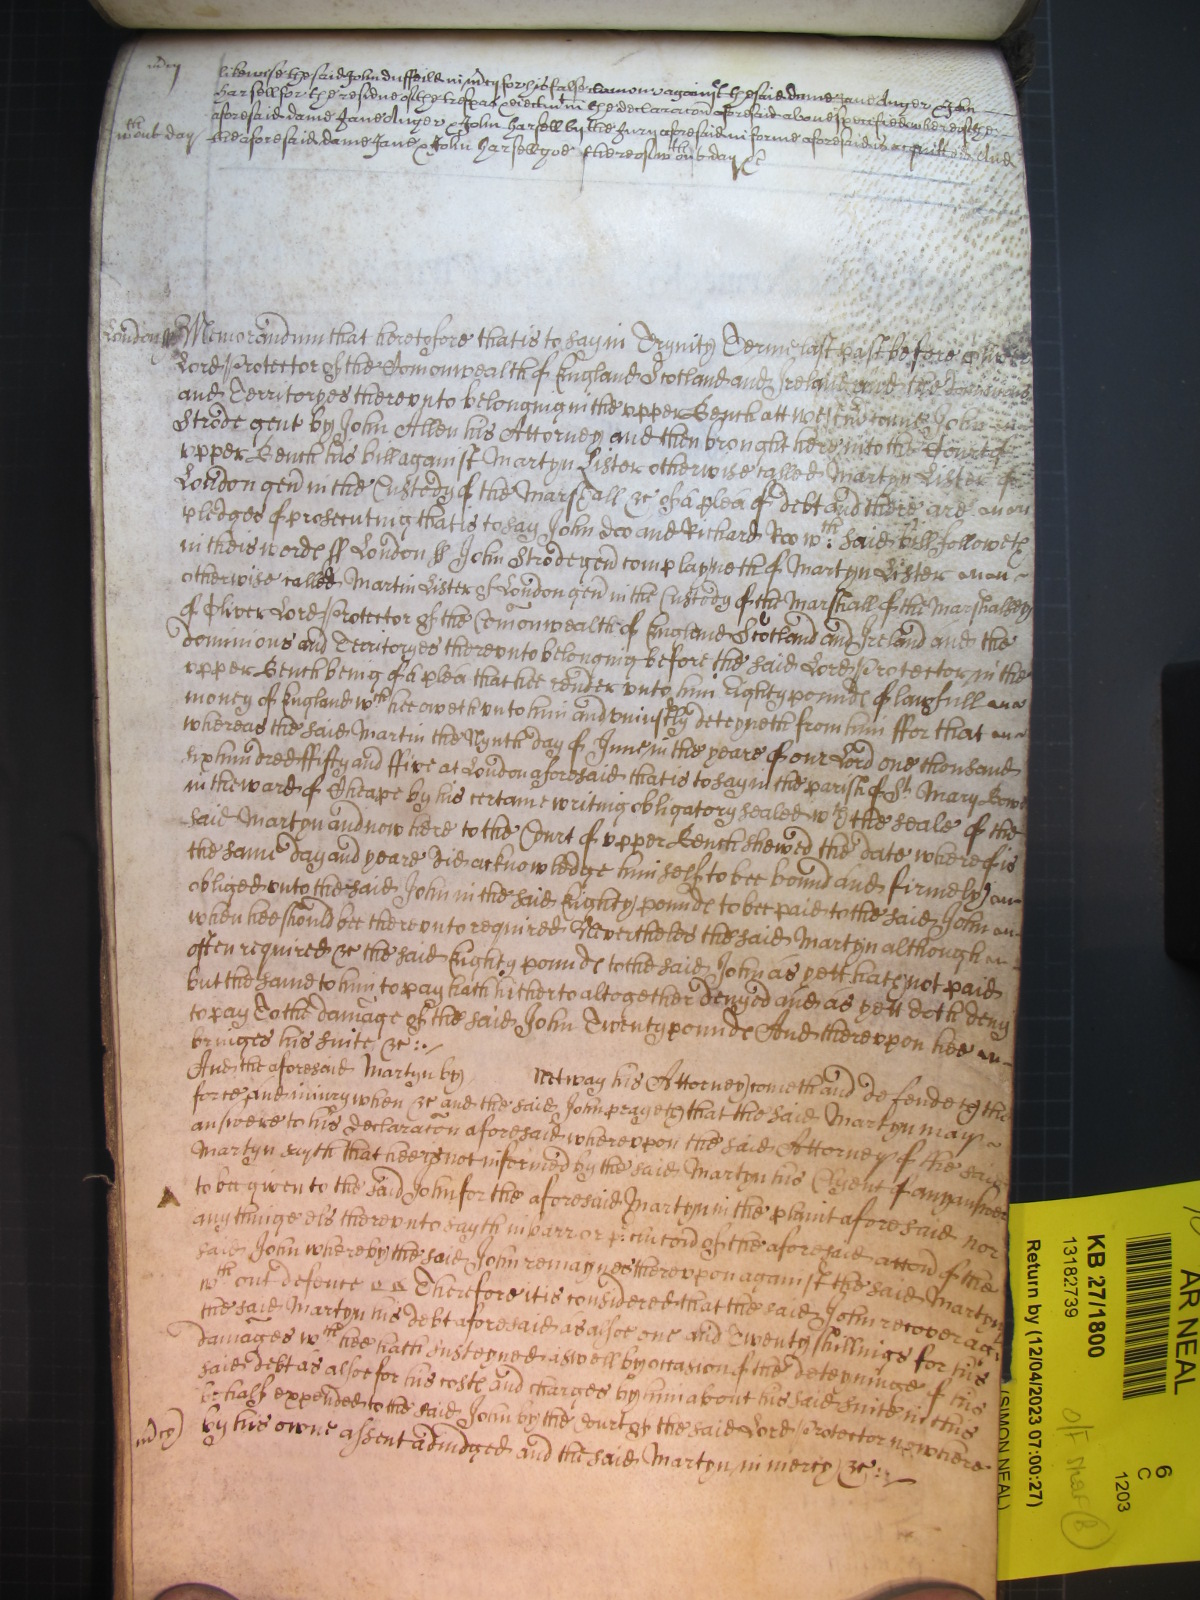 mcy likewise the said John Duffeild in mcy for his false clamour against the said dame Jane Anger & John
Harsell for the residue of the trespas & eiectmt in the declaracon aforesaid above specified whereof the
aforesaid dame Jane Anger & John Harsell by the Jury aforesaid in forme aforesaid is acquitted And
wthout day the aforesaid dame Jane & John Harsell goe thereof wthout day &c
London ss Memorandum that heretofore that is to say in Trynity Terme last past before Oliver
Lord Protector of the Comonwealth of England Scotland and Ireland and the Dominions
and Territoryes therevnto belonging in the vpper Bench att Westm came John
Strode gent by John Allen his Attorney and then brought here into the Court of
vpper Bench his bill against Martyn Lister otherwise called Martyn Lister of
London gent in the Custody of the Marshall &c of a plea of debt and there are
pledges of prosecuting that is to say John Doo and Richard Roo wth said bill followeth
in theis words ss London ss John Strode gent complayneth of Martyn Lister
otherwise called Martin Lister of London gent in the Custody of the Marshall of the Marshallsey
of Oliver Lord Protector of the Comonwealth of England Scotland and Ireland and the
dominions and Territoryes therevnto belonging before the said Lord Protector in the
vpper Bench being of a plea that hee render vnto him Eighty pounds of lawfull
money of England wch hee oweth vnto him and vniustly deteyneth from him ffor that
whereas the said Martin the Nynth day of June in the yeare of our Lord one thousand
six hundred ffifty and ffive at London aforesaid that is to say in the parish of St Mary Bowe
in the ward of Cheape by his certaine writing obligatory sealed wth the seale of the
said Martyn and now here to the Court of vpper Bench shewed the date whereof is
the same day and yeare did acknowledge himself to bee bound and firmely
obliged vnto the said John in the said Eighty pounds to bee paid to the said John
when hee should bee therevnto required Neverthelesse the said Martyn although
often required &c the said Eighty pounds to the said John as yett hath not paid
but the same to him to pay hath hitherto altogether denyed and as yett doth deny
to pay To the damage of the said John Twenty pounds And therevpon hee
bringes his suite &c
And the aforesaid Martyn by Netway his Attorney cometh and defendeth the
force and iniury when &c and the said John prayeth that the said Martyn may
answere to his declaracon aforesaid wherevpon the said Attorney of the said
Martyn sayth that hee is not informed by the said Martyn his Clyent of any answer
to bee given to the said John for the aforesaid Martyn in the plaint aforesaid nor
any thinge els therevnto sayth in barr or of the aforesaid accon of the
said John whereby the said John remaynes therevpon against the said Martyn
wthout defence Therefore it is considered that the said John recover agt
the said Martyn his debt aforesaid as alsoe one and Twenty shillings for his
damages wch hee hath susteyned aswell by occasion of the deteyninge of his
said debt as alsoe for his costs and charges by him about his said suite in this
behalf expended to the said John by the Court of the said Lord Protector now here
mcy by his owne assent adiudged and the said Martyn in mercy &c
AR NEAL
KB 27/1800
13182739
Return by (12/04/2023 07:00:27)
(SIMON NEAL)
6
C
1203